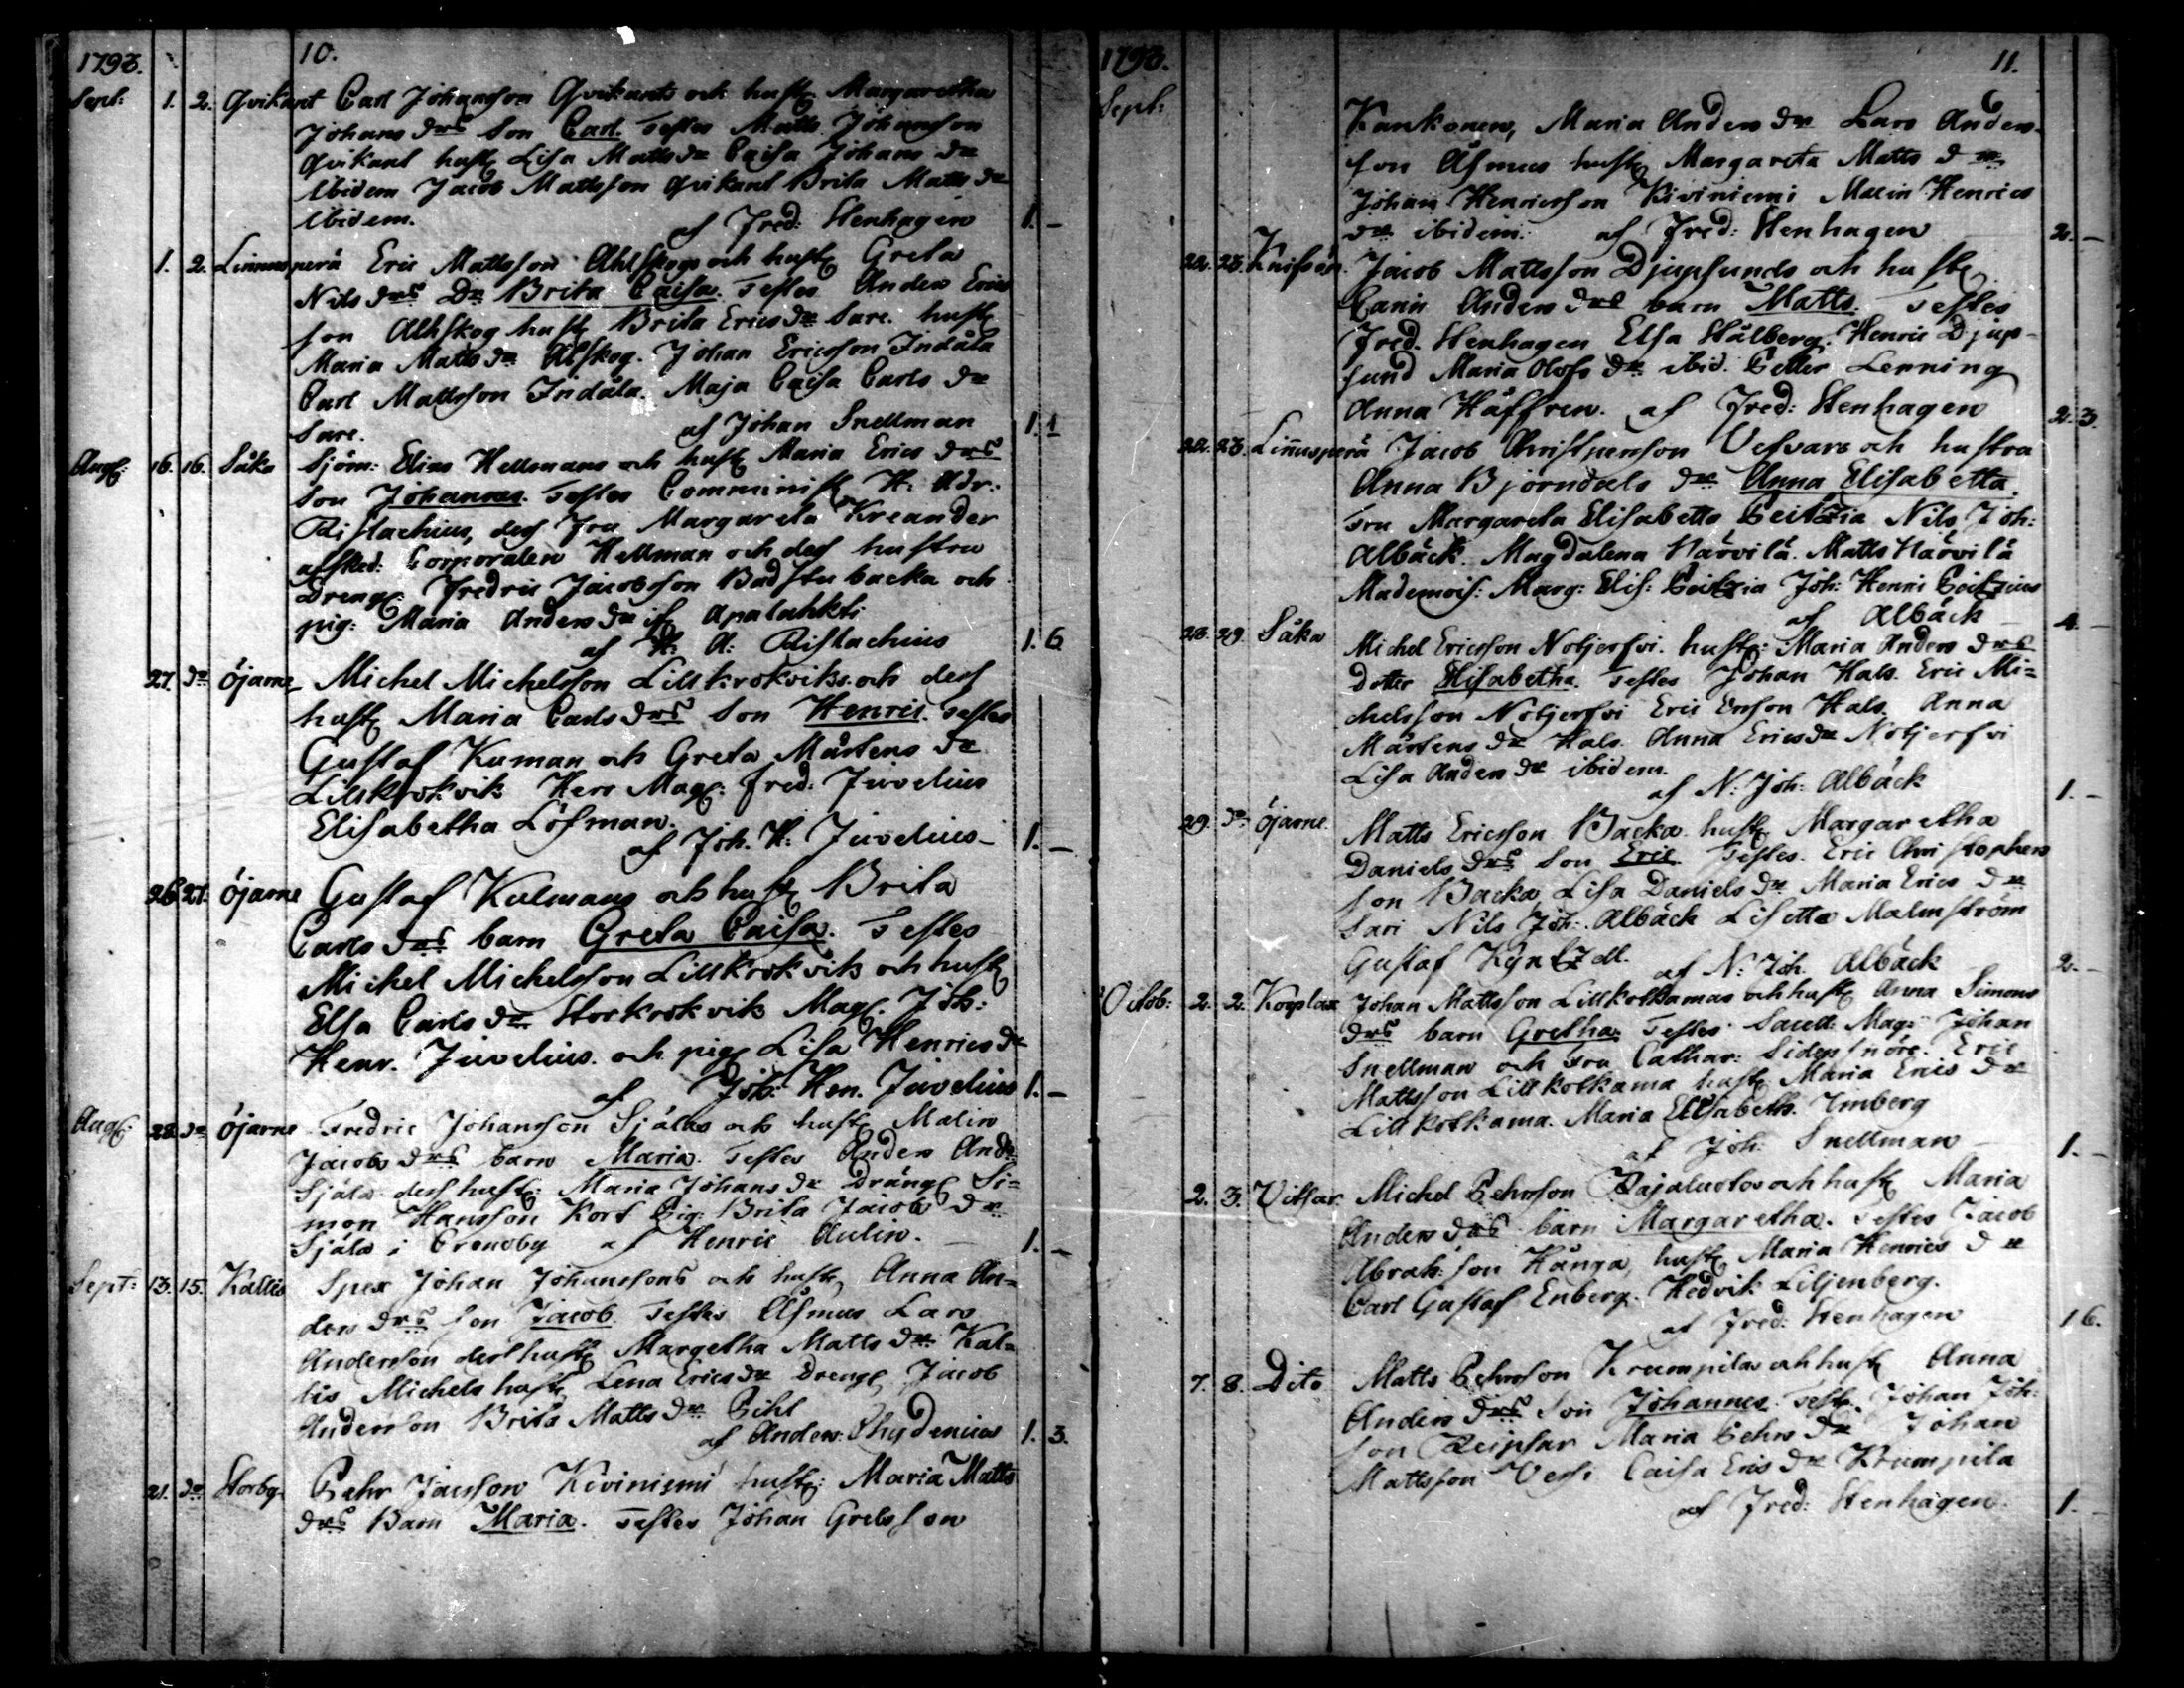 1793. 10.
Sept: 1. 2. Qvikant Carl Johansson Qvikants och hust Margaretha
Johans drs Son Carl. Testes Matts Johansson
Qvikant hust Lisa Matts dr Caisa Johans dr
Ibidem Jacob Mattsson Qvikant Brita Matts dr
Ibidem. af Fred: Stenhagen 1. -
1. 2. Linnusperä Eric Mattsson Ahlskogs och hust Greta
Nils drs Dr Brita Caisa. Testes Anders Erics
son Ahlskog hust Brita Erics dr Sare. hust
Maria Matts dr Ålskog. Johan Ericsson Indåla
Carl Mattsson Indåla. Maja Caisa Carls dr
Sare. af Johan Snellman 1. 1
Aug: 16. 16. Såka Sjöm: Elias Hellmans och hust Maria Erics drs
Son Johannes. Testes Comminist H: Adr:
Ristachius, dess fru Margareta Kreander
afsked: Corporalen Hellman och dess hustru
Dreng: Fredric Jacobsson Badstubacka och
pig: Maria Anders dr Apalahkti
af H: A: Ristachius 1. 6
27. do Öjarne Michel Michelsson Lillkrokviks och dess
hust Maria Carls drs Son Henric. Testes
Gustaf Kuman och Greta Mårtens dr
Lillkrokvik Herr Mag: Fred: Juvelius
Elisabetha Löfman.
af Joh. H: Juvelius - 1. -
26. 27. Öjarne Gustaf Kulmans och hust Brita
Carls drs barn Greta Caisa. Testes
Michel Michelsson Lillkrokvik och hust
Elsa Carls dr Storkrokvik Mag: Joh:
Henr. Juvelius och pig Lisa Henrics dr
af Joh: Hen. Juvelius 1. -
Aug: 28. do Öjarne Fredric Johansson Själas och hust Malin
Jacobs drs barn Maria. Testes Anders Ands
Själa dess hust: Maria Johans dr Dräng Si=
mon Hansson Kort Pig: Brita Jacobs dr
Själa i Cronoby af Henric Aulin. - 1. -
Sept: 13. 15. Kallis Spex Johan Johanssons och hust Anna An=
ders drs son Jacob. Testes Åsmus Lars
Andersson dess hust Margetha Matts dr Kal=
lis Michels hust Lena Erics dr Dreng Jacob
Andersson Brita Matts dr Pihl
af Anders: Chydenius 1. 3.
21. do Storby Pehr Jansson Kiviniemi hust: Maria Matts
drs Barn Maria. Testes Johan Grelsson
1793. 11.
Sept:
Kankonen, Maria Anders dr Lars Anders
son Åsmus hust Margareta Matts dr
Johan Henricsson Kiviniemi Malin Henrics
dr ibidem. af Fred: Stenhagen 2. -
22. 23. Knifsön. Jacob Mattsson Djupsunds och hust
Carin Anders drs barn Matts. Testes
Fred. Stenhagen Elsa Stålberg. Henric Djup-
sund Maria Olofs dr ibid. Petter Lenning
Anna Häffren. af Fred: Stenhagen 2. 3.
22. 23. Linnusperä Jacob Christpersson Vesvars och hustru
Anna Björndals dr Anna Elisabetta.
Fru Margareta Elisabetta Peitzia Nils Joh:
Albäck. Magdalena Härvilä. Matts Härvilä
Mademois: Marg: Elis: Peitzia Joh: Henri Peitzius
af Albäck - 4. -
28. 29. Såka Michel Ericsson Notjerfvi. hust: Maria Anders drs
Dotter Elisabetha. Testes Johan Hals. Eric Mi=
chelsson Notjerfvi Eric Erson Hals. Anna
Mårtens dr Hals. Anna Erics dr Notjerfvi
Lisa Anders dr ibidem.
af N: Joh: Albäck 1. -
29. do Öjarne. Matts Ericsson Backa hust Margaretha
Daniels drs Son Eric Testes. Eric Christophers
son Backa Lisa Daniels dr Maria Erics dr
Sari Nils Joh: Albäck Lisetta Malmström
Gustaf Kyntzell.
af N: Joh. Albäck 2. -
Octob: 2. 2. Korplax Johan Mattsson Lillkotkamas och hust Anna Simons
drs barn Gretha. Testes Sacell: Mag: Johan
Snellman och fru Cathar: Sidensnöre. Eric
Mattsson Lillkotkama hust Maria Erics dr
Lillkotkama. Maria Elisabeth. Imberg
af Joh: Snellman - 1. -
2. 3. Vitsar Michel Pehrsson Rajaluotos och hust Maria
Anders drs barn Margaretha. Testes Jacob
Abrah: son Hånga, hust Maria Henrics dr
Carl Gustaf Enberg. Hedvik Liljenberg.
af Fred: Stenhagen 1 6.
7. 8. Dito Matts Pehrsson Krumpilas och hust Anna
Anders drs Son Johannes. Test. Johan Joh:
son Reipsar Maria Pehrs dr Johan
Mattsson Caisa Erics dr Krumpila
af Fred: Stenhagen. 1. -